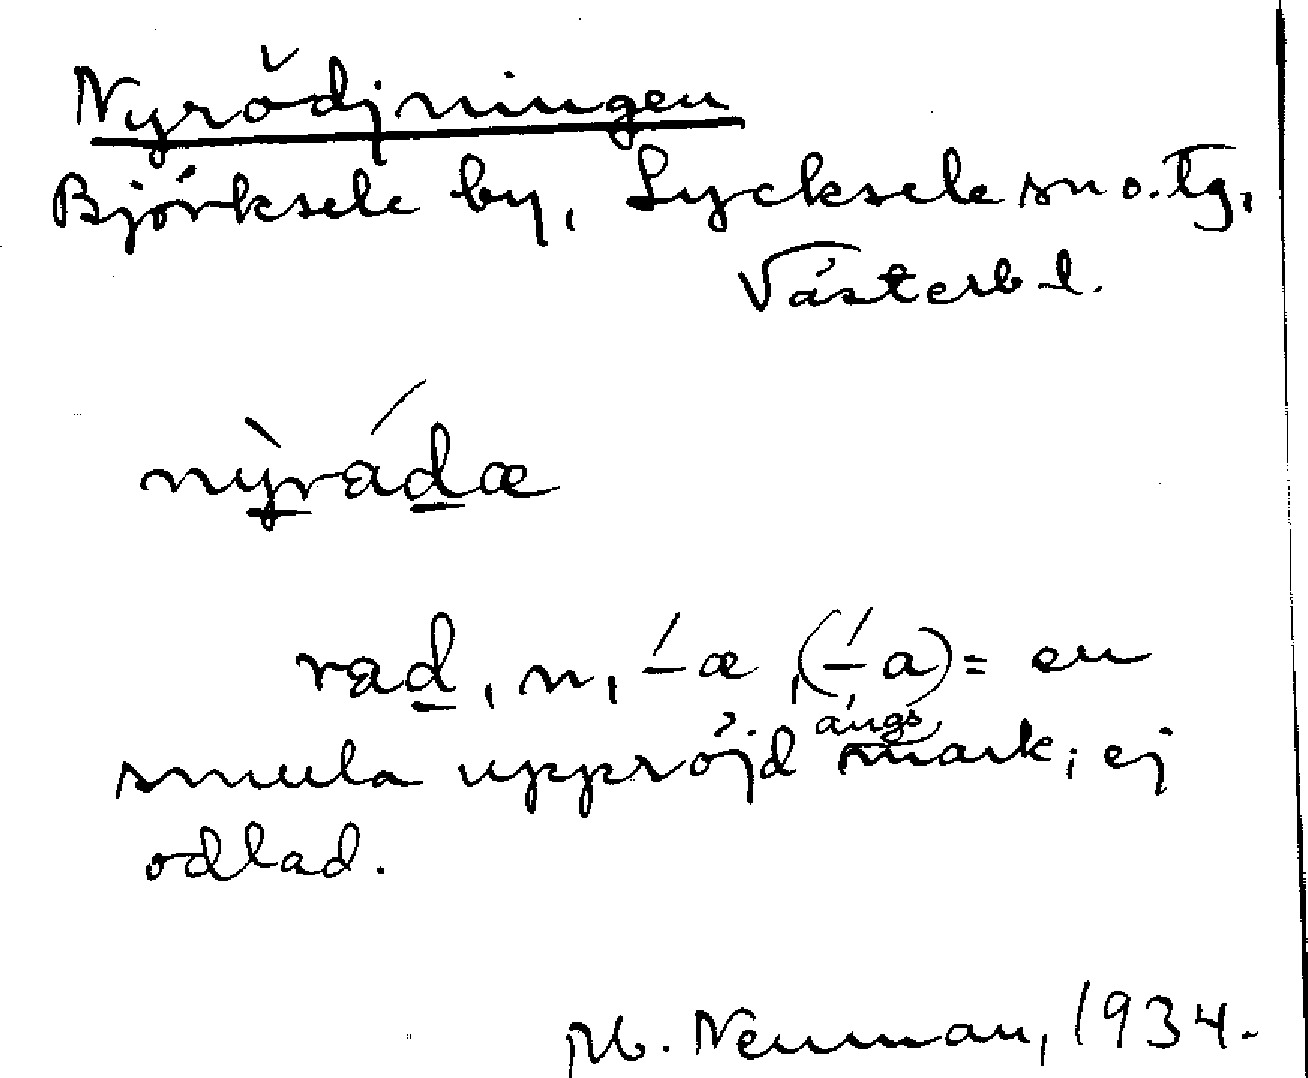 Nyrödjningen
Björksele by, Lycksele sn o. tg,
Västerb l.
nỳrádæ
rad, n, -́æ, (-́a) = en
smula uppröjd ängsmark; ej
odlad.
Neuman, 1934.